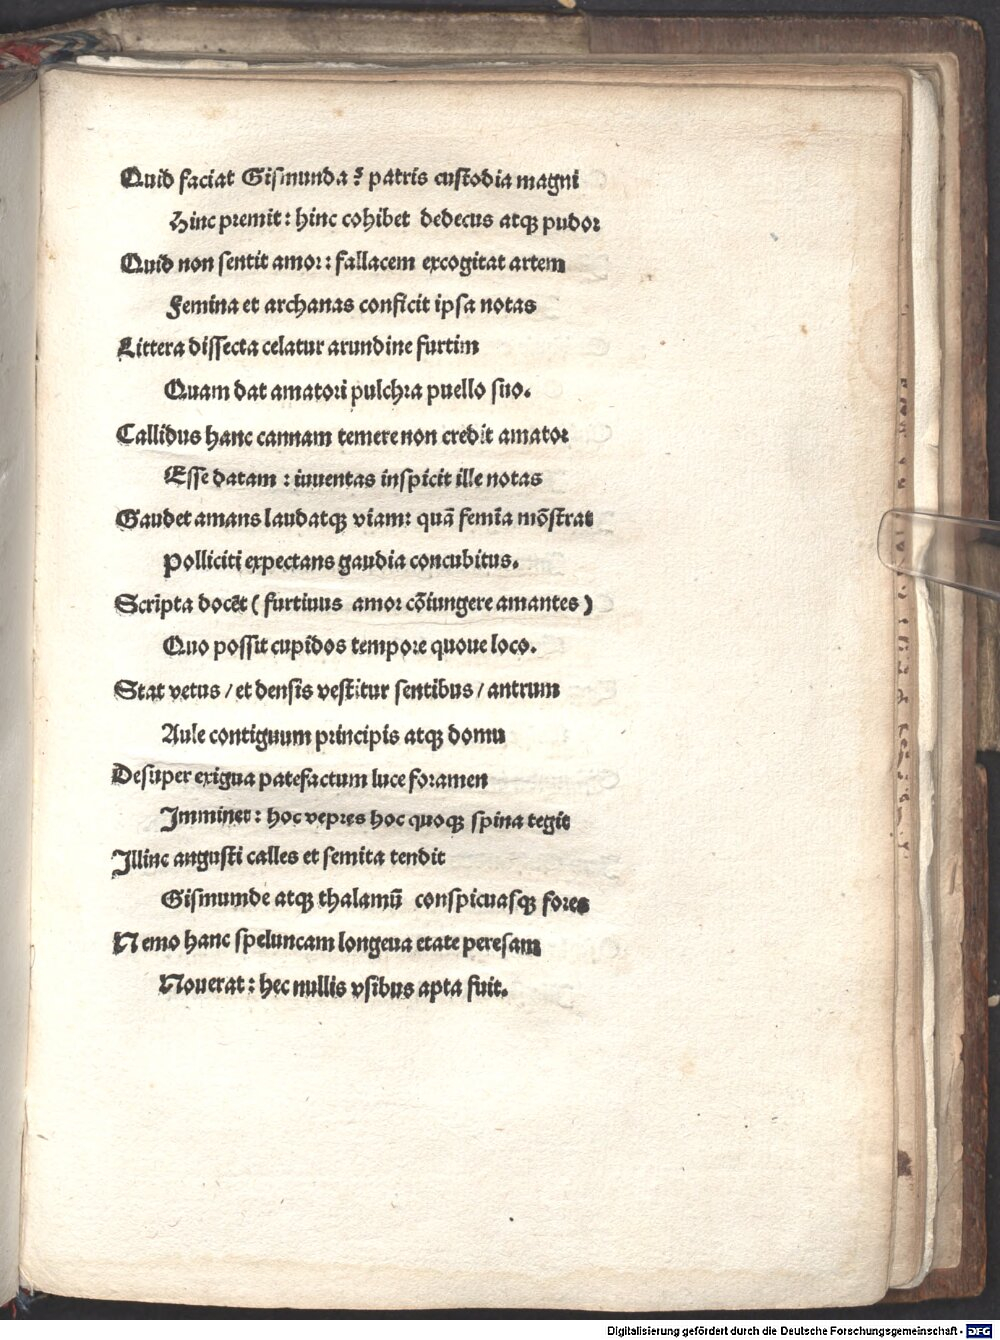 Quid faciat Gismunda? patris custodia magni
Hinc premit: hinc cohibet dedecus atqꝫ pudor
Quid non sentit amor: fallacem excogitat artem
Femina et archanas conficit ipsa notas
Littera dissecta celatur arundine furtim
Quam dat amatori pulchra puello suo.
Callidus hanc cannam temere non credit amator
Esse datam: iuuentas inspicit ille notas
Gaudet amans laudatqꝫ viam: quā femīa mōstrat
Polliciti expectans gaudia concubitus.
Scripta docēt (furtiuus amor cōiungere amantes)
Quo possit cupidos tempore quoue loco.
Stat vetus / et densis vestitur sentibus / antrum
Aule contiguum principis atqꝫ domu
Desuper exigua patefactum luce foramen
Imminet: hoc vepres hoc quoqꝫ spina tegit
Illinc angusti calles et semita tendit
Gismunde atqꝫ thalamū conspicuasqꝫ fores
Nemo hanc speluncam longeua etate peresam
Nouerat: hec nullis vsibus apta fuit.
Digitalisierung gefördert durch die Deutsche Forschungsgemeinschaft - DFG